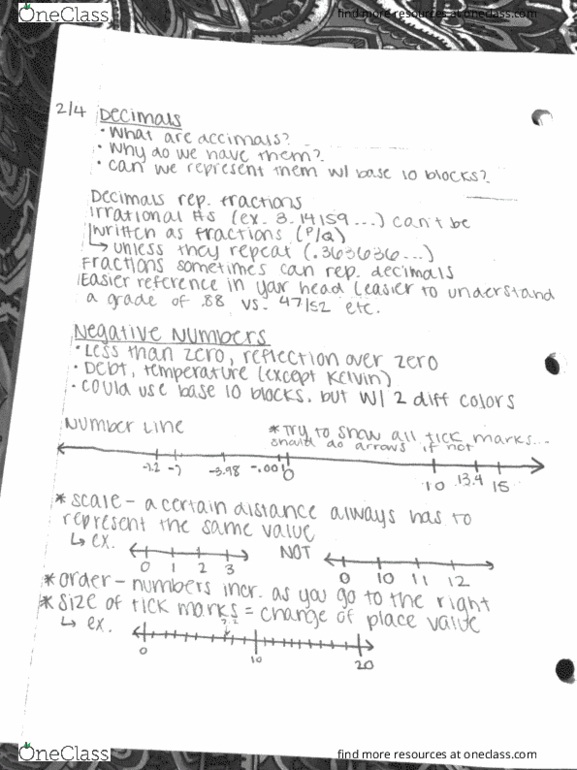 OneClass
find more resources at oneclass.com
2/4 Decimals
• What are decimals?
• Why do we have them?
• can we represent them w/ base 10 blocks?
Decimals rep. fractions
Irrational #s (ex. 3.14159...) can't be
written as fractions (P/Q)
↳ unless they repeat (.363636...)
Fractions sometimes can rep. decimals
Easier reference in your head (easier to understand
a grade of .88 vs. 47/52 etc.
Negative Numbers
• Less than zero, reflection over zero
• Debt, temperature (except Kelvin)
• could use base 10 blocks, but w/ 2 diff colors
Number Line
* Try to show all tick marks...
should do arrows if not
-3.98 -.001 0 10 13.4 15
* scale - a certain distance always has to
represent the same value
↳ ex. 0 1 2 3 NOT 0 10 11 12
* order - numbers incr. as you go to the right
* size of tick marks = change of place value
↳ ex.
0 10 20
OneClass
find more resources at oneclass.com